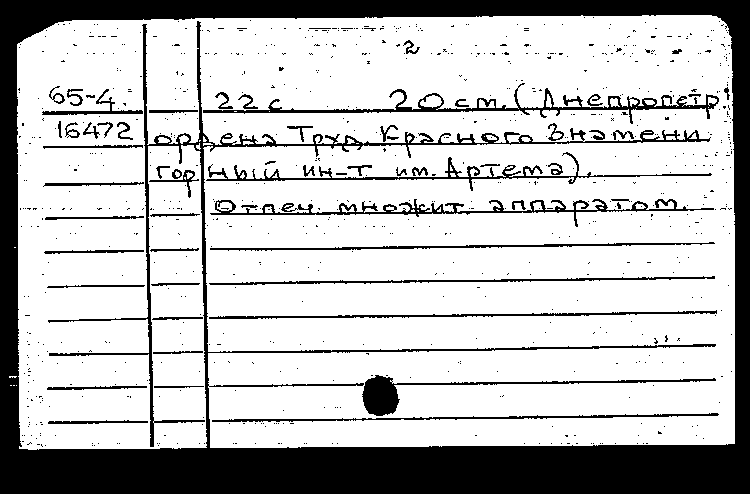 2
65-4. 22 с. 20 см. (Днепропетр.
16472 ордена Труд. Красного Знамени
горный ин-т им. Артема).
Отпеч. множит. аппаратом.